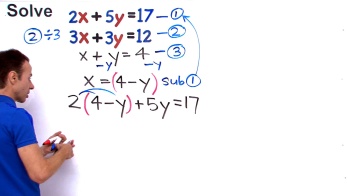 Solve 2x + 5y = 17 – ①
② ÷3 3x + 3y = 12 – ②
x + y = 4 – ③
–y –y
x = (4 – y) sub ①
2(4 – y) + 5y = 17